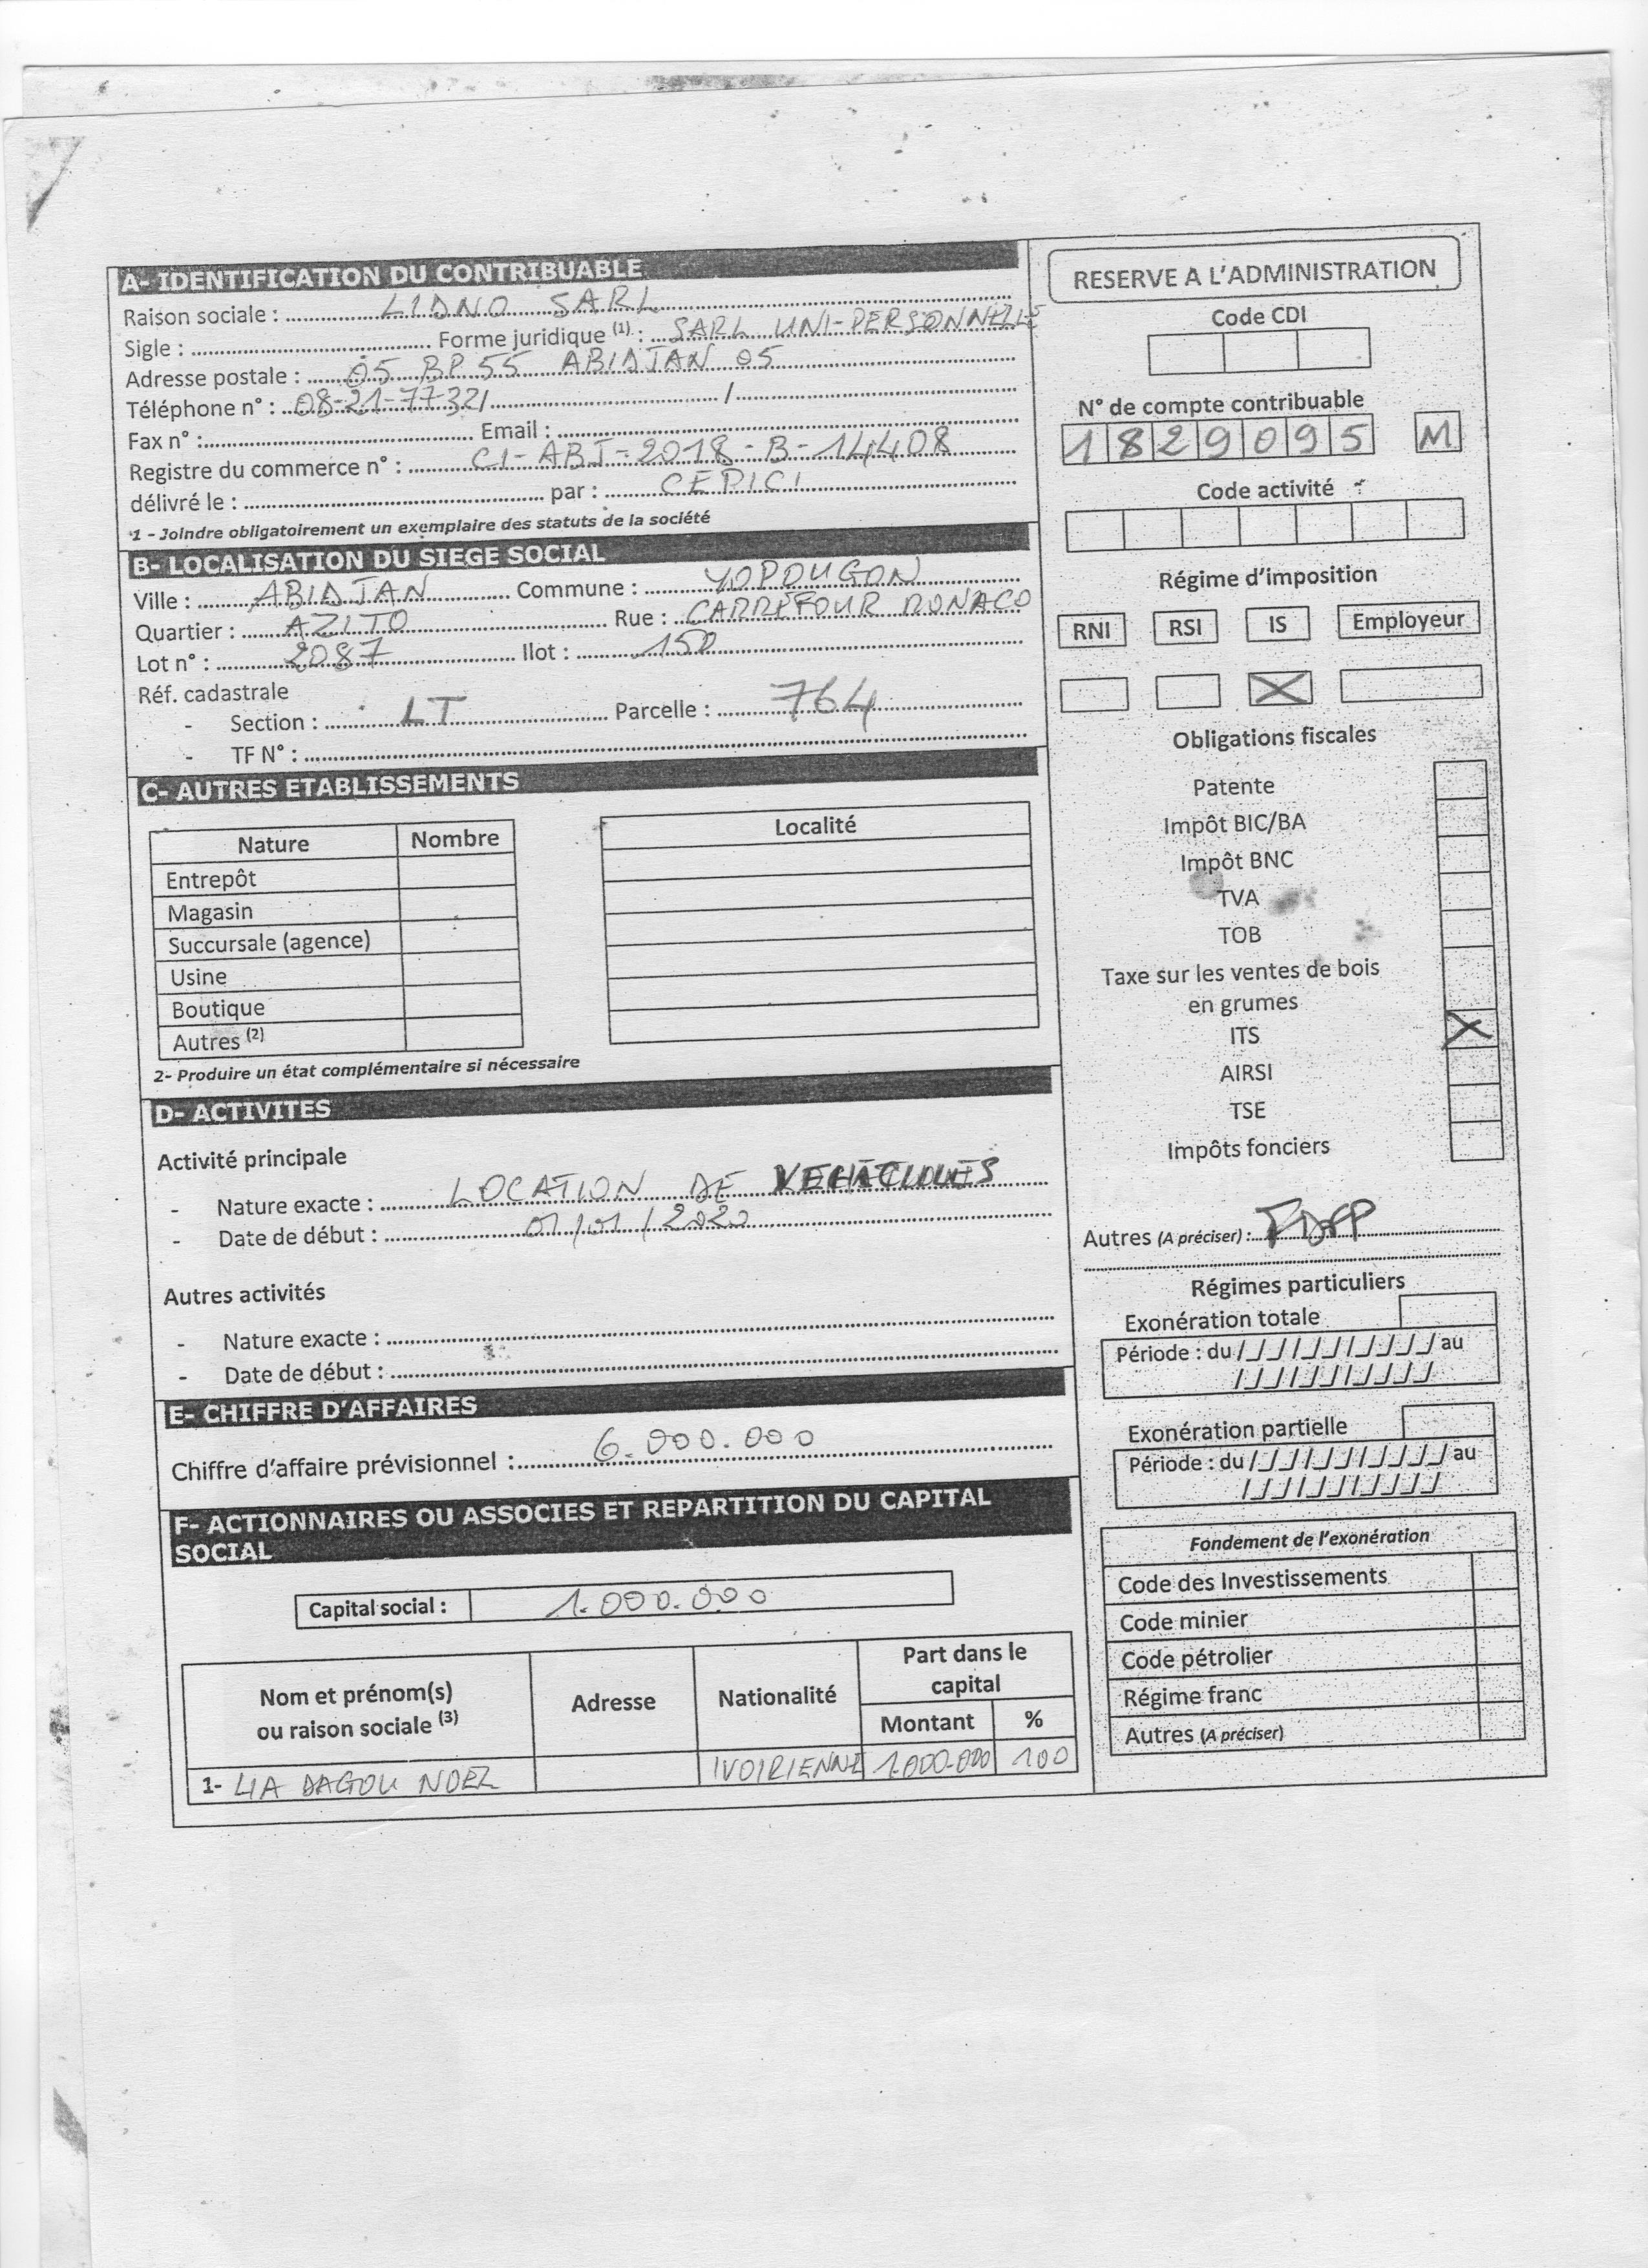 A- IDENTIFICATION DU CONTRIBUABLE
Raison sociale : LIDNO SARL
Sigle : Forme juridique (1) : SARL UNI-PERSONNELLE
Adresse postale : 05 BP 55 ABIDJAN 05
Téléphone n° : 08-21-77-32/ /
Fax n° : Email :
Registre du commerce n° : CI-ABJ-2018-B-14408
délivré le : par : CEPICI
1 - Joindre obligatoirement un exemplaire des statuts de la société
B- LOCALISATION DU SIEGE SOCIAL
Ville : ABIDJAN Commune : YOPOUGON
Quartier : AZITO Rue : CARREFOUR MONACO
Lot n° : 2087 Ilot : 150
Réf. cadastrale
- Section : LT Parcelle : 764
- TF N° :
C- AUTRES ETABLISSEMENTS
Nature Nombre Localité
Entrepôt
Magasin
Succursale (agence)
Usine
Boutique
Autres (2)
2- Produire un état complémentaire si nécessaire
D- ACTIVITES
Activité principale
- Nature exacte : LOCATION DE
- Date de début : 01/01/2020
Autres activités
- Nature exacte :
- Date de début :
E- CHIFFRE D'AFFAIRES
Chiffre d'affaire prévisionnel : 6.000.000
F- ACTIONNAIRES OU ASSOCIES ET REPARTITION DU CAPITAL
SOCIAL
Capital social : 1.000.000
Nom et prénom(s)
ou raison sociale (3)
Adresse
Nationalité
Part dans le
capital
Montant %
1- LIA DAGOU NOEL IVOIRIENNE 1.000.000 100
RESERVE A L'ADMINISTRATION
Code CDI
N° de compte contribuable
1829095 M
Code activité
Régime d'imposition
RNI RSI IS Employeur
X
Obligations fiscales
Patente
Impôt BIC/BA
Impôt BNC
TVA
TOB
Taxe sur les ventes de bois
en grumes
ITS X
AIRSI
TSE
Impôts fonciers
Autres (A préciser) : FDFP
Régimes particuliers
Exonération totale
Période : du /_/_/ /_/_/ /_/_/_/_/ au
/_/_/ /_/_/ /_/_/_/_/
Exonération partielle
Période : du /_/_/ /_/_/ /_/_/_/_/ au
/_/_/ /_/_/ /_/_/_/_/
Fondement de l'exonération
Code des Investissements
Code minier
Code pétrolier
Régime franc
Autres (A préciser)